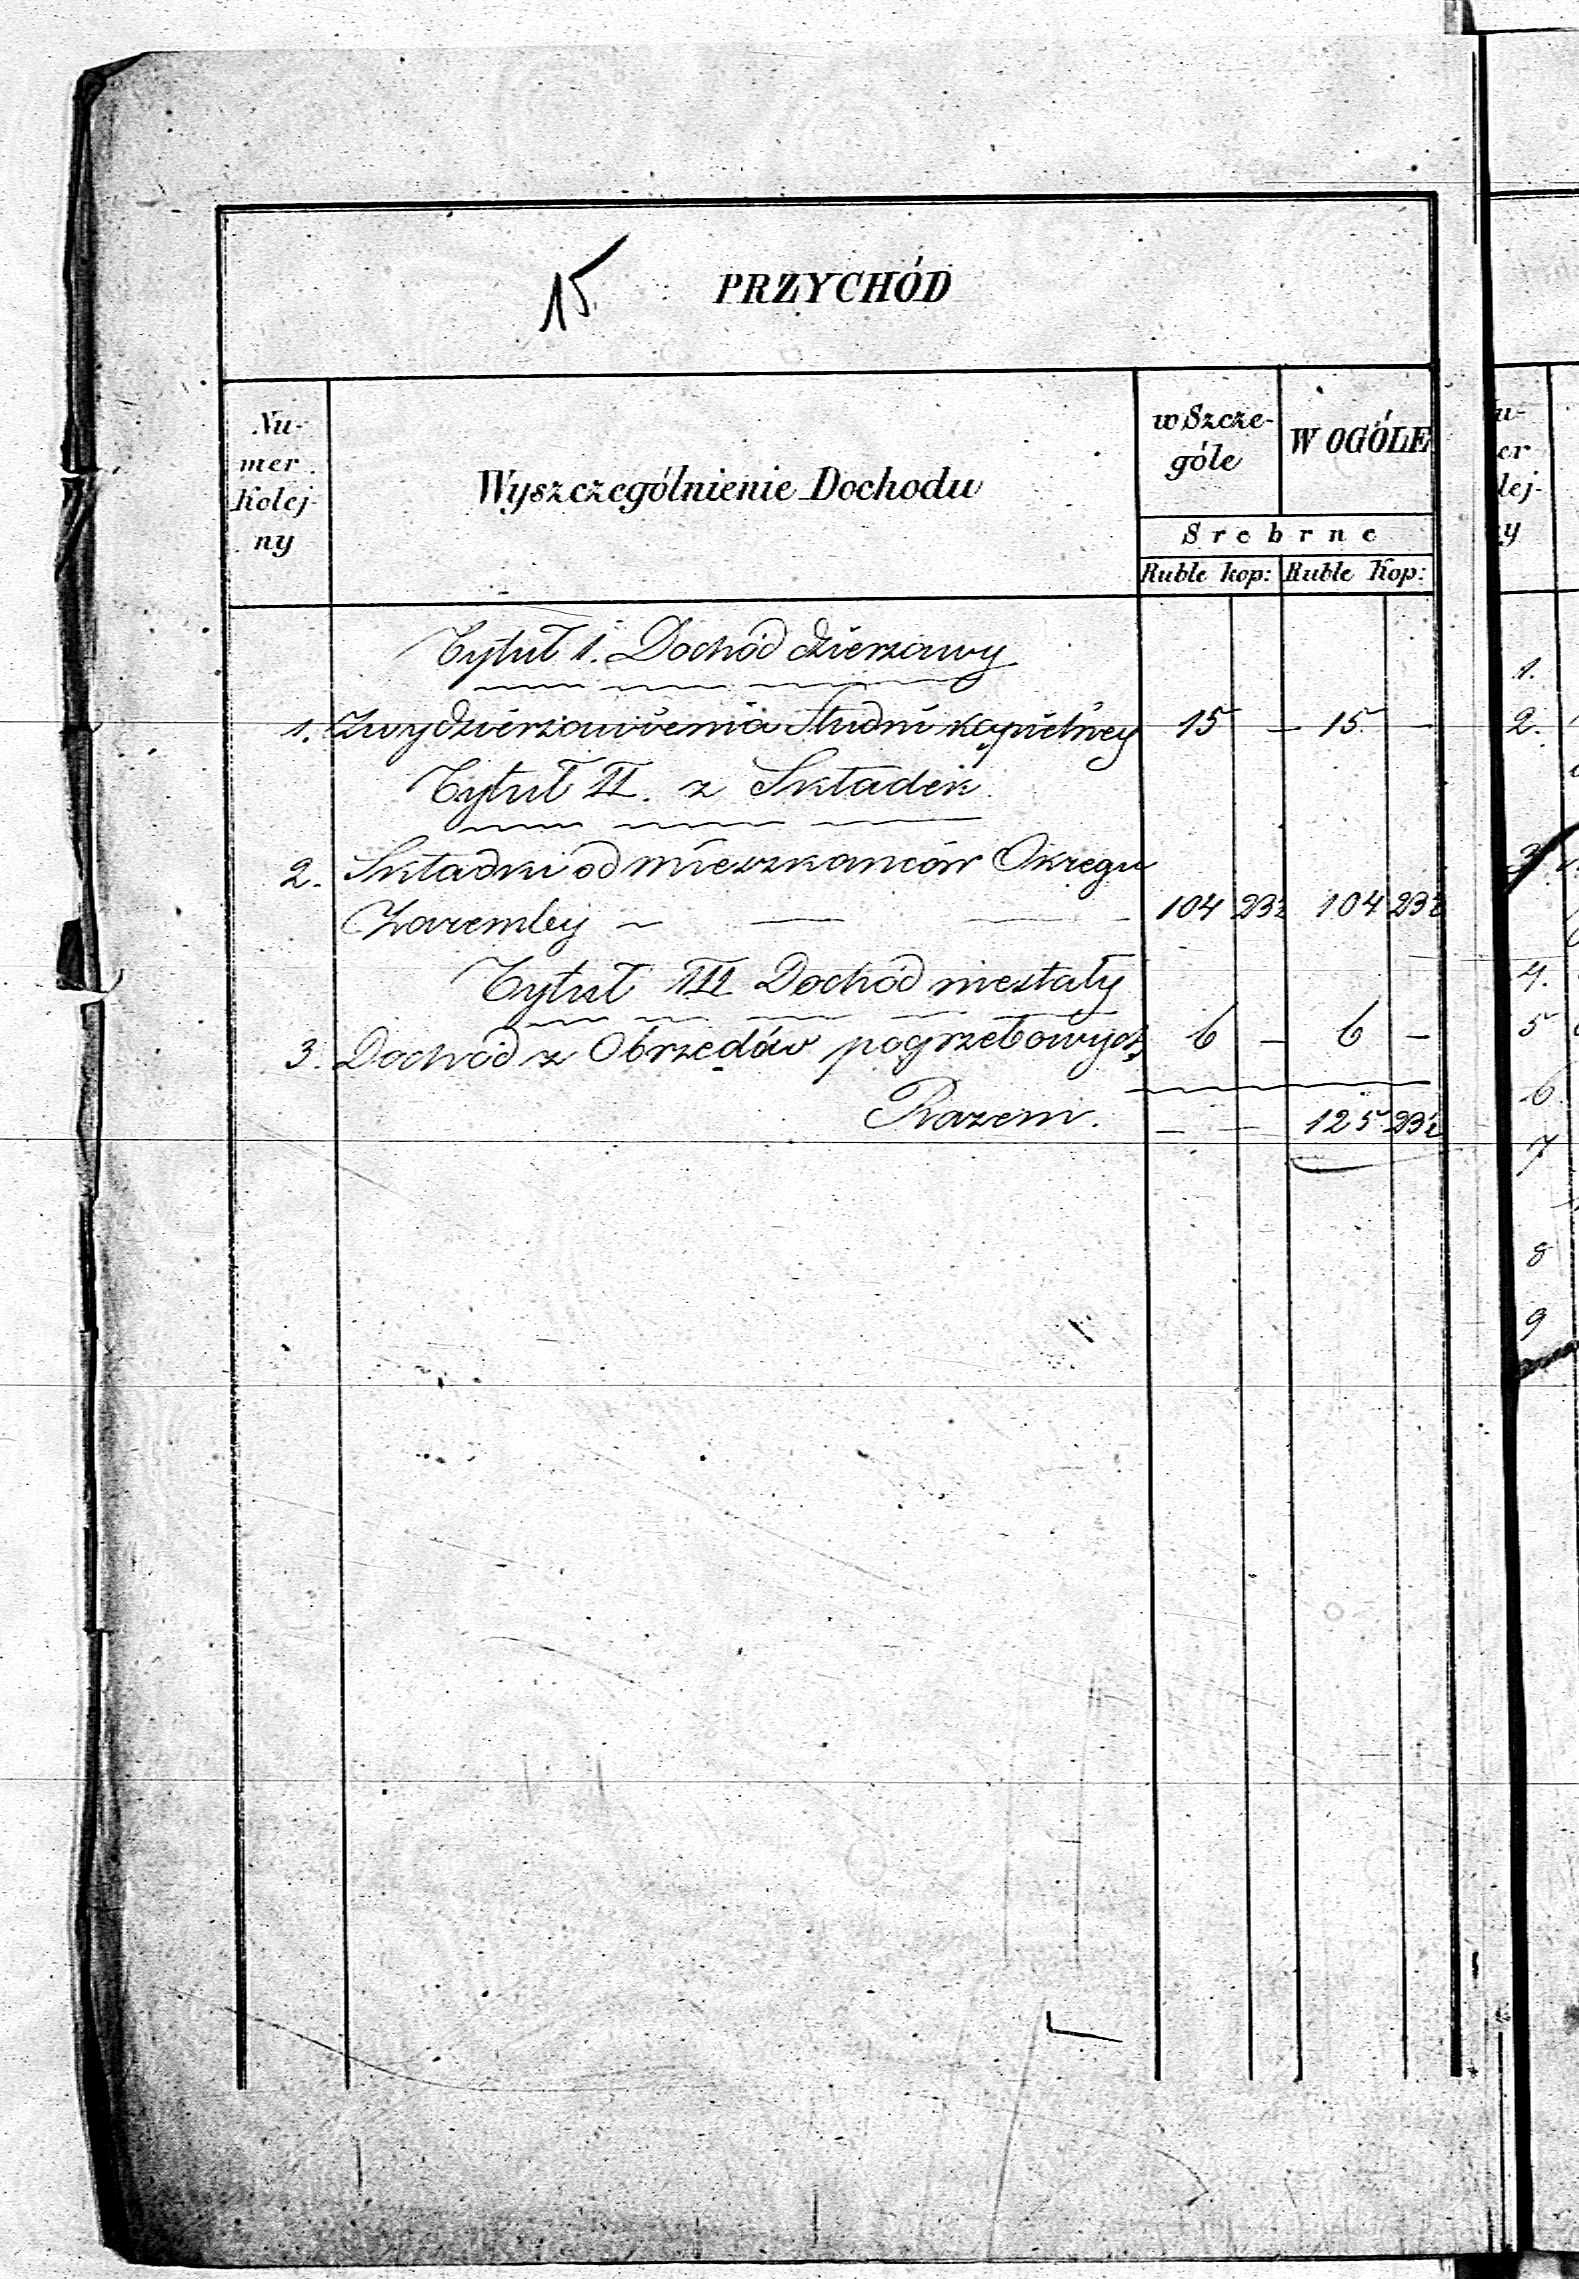 15. PRZYCHÓD
Nu-
mer
Kolej-
ny
Wyszczególnienie Dochodu
w Szcze-
góle
W OGÓLE
Srebrne
Ruble kop: Ruble Kop:
Tytuł 1. Dochód dzierzawy
1. Zwydzierzawienia Studni kąpielney 15 – 15 –
Tytuł II. z Składek
2. Składki od mieszkancow Okręgu
Zaremby – — — 104 23½ 104 23½
Tytuł III Dochód niestały
3. Dochód z Obrzędów pogrzebowych 6 – 6 –
Razem. – – 125 23½
u-
er
lej-
y
1.
2.
3
4.
5
6
7
8
9